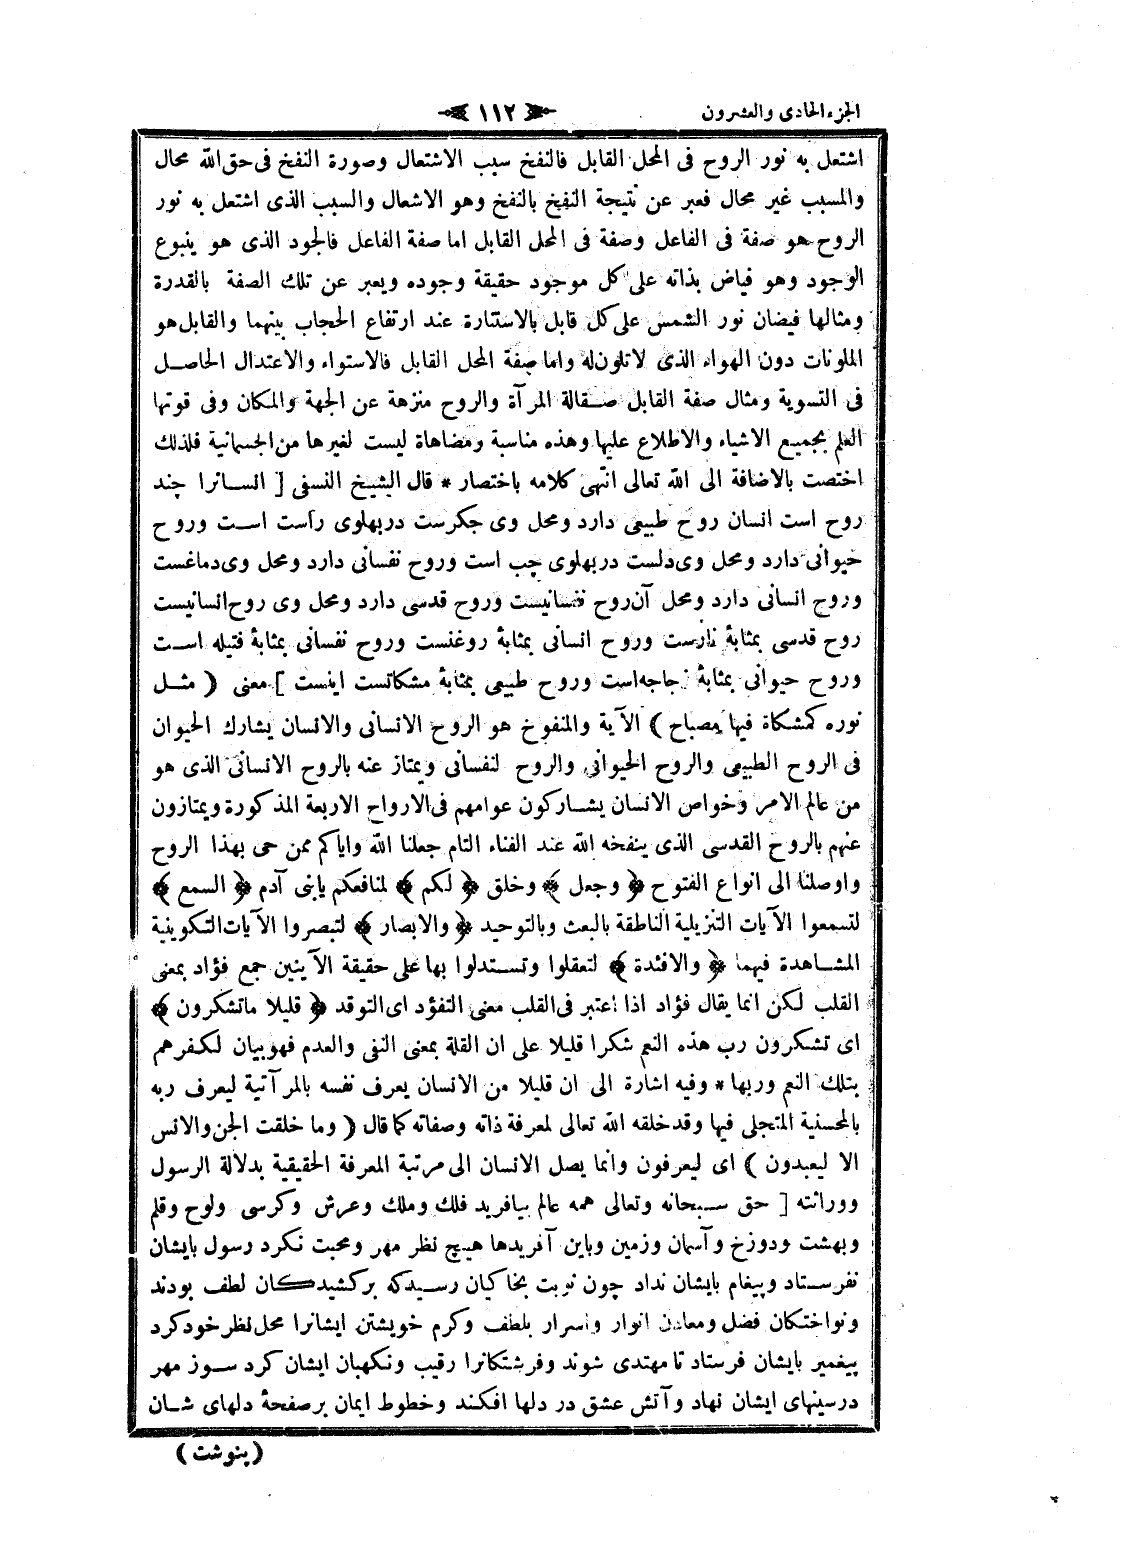 الجزء الحادى والعشرون
١١٢
اشتعل به نور الروح فى المحل القابل فالنفخ سبب الاشتعال وصورة النفخ فى حق الله محال
والمسبب غير محال فعبر عن نتيجة النفخ بالنفخ وهو الاشعال والسبب الذى اشتعل به نور
الروح هو صفة فى الفاعل وصفة فى المحل القابل اما صفة الفاعل فالجود الذى هو ينبوع
الوجود وهو فياض بذاته على كل موجود حقيقة وجوده ويعبر عن تلك الصفة بالقدرة
ومثالها فيضان نور الشمس على كل قابل بالاستنارة عند ارتفاع الحجاب بينهما والقابل هو
الملونات دون الهواء الذى لا تلون له واما صفة المحل القابل فالاستواء والاعتدال الحاصل
فى التسوية ومثال صفة القابل صقالة المرآة والروح منزهة عن الجهة والمكان وفى قوتها
العلم بجميع الاشياء والاطلاع عليها وهذه مناسبة ومضاهاة ليست لغيرها من الجسمانية فلذلك
اختصت بالاضافة الى الله تعالى انتهى كلامه باختصار * قال الشيخ النسفى [ انسانرا چند
روح است انسان روح طبيعى دارد ومحل وى جكرست دربهلوى راست است وروح
حيوانى دارد ومحل وى دلست دربهلوى چب است وروح نفسانى دارد ومحل وى دماغست
وروح انسانى دارد ومحل آن روح نفسانيست وروح قدسى دارد ومحل وى روح انسانيست
روح قدسى بمثابۀ نارست وروح انسانى بمثابۀ روغنست وروح نفسانى بمثابۀ فتيله است
وروح حيوانى بمثابۀ زجاجه است وروح طبيعى بمثابۀ مشكاتست اينست ] معنى ( مثل
نوره كمشكاة فيها مصباح ) الآية والمنفوخ هو الروح الانسانى والانسان يشارك الحيوان
فى الروح الطبيعى والروح الحيوانى والروح لنفسانى ويمتاز عنه بالروح الانسانى الذى هو
من عالم الامر وخواص الانسان يشاركون عوامهم فى الارواح الاربعة المذكورة ويمتازون
عنهم بالروح القدسى الذى ينفخه الله عند الفناء التام جعلنا الله واياكم ممن حى بهذا الروح
واوصلنا الى انواع الفتوح ﴿ وجعل ﴾ وخلق ﴿ لكم ﴾ لمنافعكم يابنى آدم ﴿ السمع ﴾
لتسمعوا الآيات التنزيلية الناطقة بالبعث وبالتوحيد ﴿ والابصار ﴾ لتبصروا الآيات التكوينية
المشاهدة فيهما ﴿ والافئدة ﴾ لتعقلوا وتستدلوا بها على حقيقة الآيتين جمع فؤاد بمعنى
القلب لكن انما يقال فؤاد اذا اعتبر فى القلب معنى التفؤد اى التوقد ﴿ قليلا ماتشكرون ﴾
اى تشكرون رب هذه النعم شكرا قليلا على ان القلة بمعنى النفى والعدم فهو بيان لكفرهم
بتلك النعم وربها * وفيه اشارة الى ان قليلا من الانسان يعرف نفسه بالمرآتية ليعرف ربه
بالمحسنية المتجلى فيها وقد خلقه الله تعالى لمعرفة ذاته وصفاته كما قال ( وما خلقت الجن والانس
الا ليعبدون ) اى ليعرفون وانما يصل الانسان الى مرتبة المعرفة الحقيقية بدلالة الرسول
ووراثته [ حق سبحانه وتعالى همه عالم بيافريد فلك وملك وعرش وكرسى ولوح وقلم
وبهشت ودوزخ وآسمان وزمين وباين آفريدها هيچ نظر مهر ومحبت نكرد رسول بايشان
نفرستاد وپيغام بايشان نداد چون نوبت بخاكيان رسيد كه بركشيدكان لطف بودند
ونواختكان فضل ومعادن انوار واسرار بلطف وكرم خويشتن ايشانرا محل نظر خود كرد
پيغمبر بايشان فرستاد تا مهتدى شوند وفرشتكانرا رقيب ونكهبان ايشان كرد سوز مهر
درسينهاى ايشان نهاد وآتش عشق در دلها افكند وخطوط ايمان برصفحۀ دلهاى شان
( بنوشت )